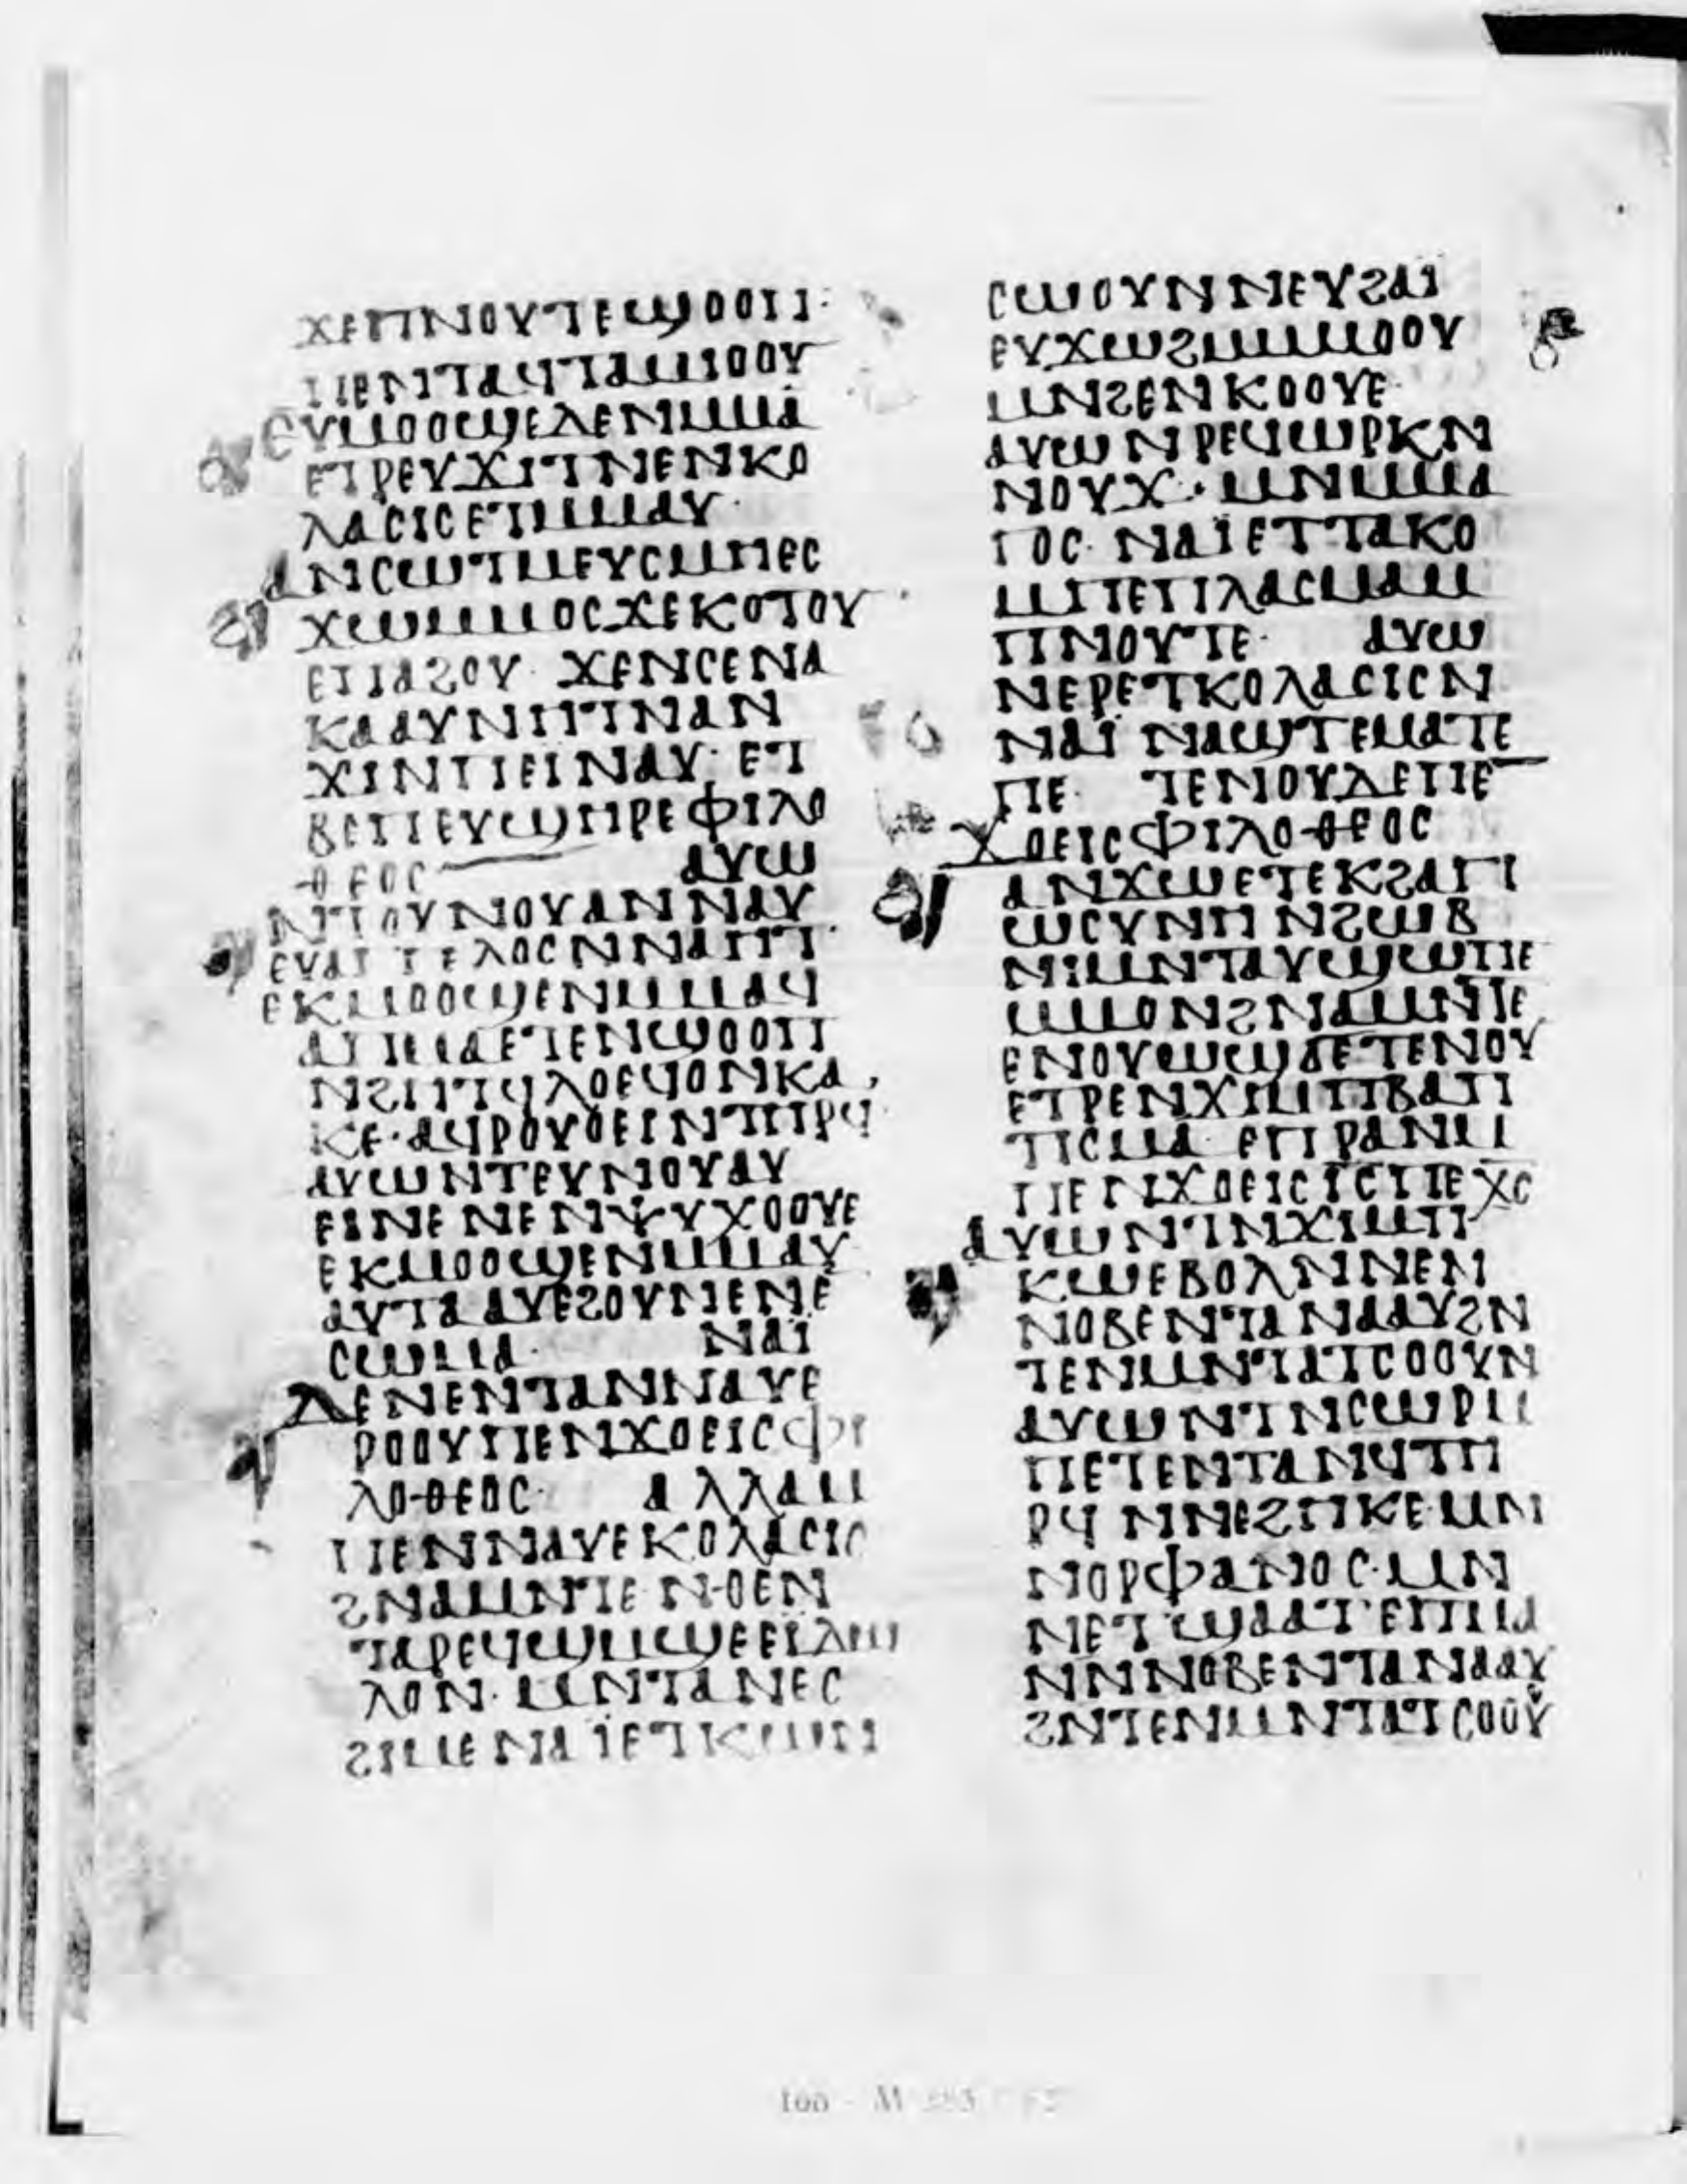 ϫⲉⲡⲛⲟⲩⲧⲉϣⲟⲟⲡ·
ⲡⲉⲛⲧⲁϥⲧⲁⲙⲓⲟⲟⲩ
ⲉⲩⲙⲟⲟϣⲉⲇⲉⲛⲙⲙⲁ
ⲉⲧⲣⲉⲩϫⲓⲧⲛⲉⲛⲕⲟ
ⲗⲁⲥⲓⲥⲉⲧⲙⲙⲁⲩ·
ⲁⲛⲥⲱⲧⲙⲉⲩⲥⲙⲏⲉⲥ
ϫⲱⲙⲙⲟⲥϫⲉⲕⲟⲧⲟⲩ
ⲉⲡⲁϩⲟⲩ· ϫⲉⲛⲥⲉⲛⲁ
ⲕⲁⲁⲩⲛⲏⲧⲛⲁⲛ
ϫⲓⲛⲧⲡⲉⲓⲛⲁⲩ· ⲉⲧ
ⲃⲉⲡⲉⲩϣⲏⲣⲉⲫⲓⲗⲟ
ⲑⲉⲟⲥ ⲁⲩⲱ
ⲛⲧⲟⲩⲛⲟⲩⲁⲛⲛⲁⲩ
ⲉⲩⲁⲅⲅⲉⲗⲟⲥⲛⲛⲁⲏⲧ·
ⲉⲕⲙⲟⲟϣⲉⲛⲙⲙⲁϥ
ⲁⲡⲙⲁⲉⲧⲉⲛϣⲟⲟⲡ
ⲛϩⲏⲧϥⲗⲟⲉϥⲟⲛⲕⲁ
ⲕⲉ·ⲁϥⲣⲟⲩⲟⲉⲓⲛⲧⲏⲣϥ
ⲁⲩⲱⲛⲧⲉⲩⲛⲟⲩⲁⲩ
ⲉⲓⲛⲉⲛⲉⲛⲯⲩⲭⲟⲟⲩⲉ
ⲉⲕⲙⲟⲟϣⲉⲛⲙⲙⲁⲩ
ⲁⲩⲧⲁⲁⲩⲉϩⲟⲩⲛⲉⲛⲉ
ⲥⲱⲙⲁ· ⲛⲁⲓ̈
ⲇⲉⲛⲉⲛⲧⲁⲛⲛⲁⲩⲉ
ⲣⲟⲟⲩⲡⲉⲛϫⲟⲉⲓⲥⲫⲓ
ⲗⲟⲑⲉⲟⲥ· ⲁⲗⲗⲁⲙ
ⲡⲉⲛⲛⲁⲩⲉⲕⲟⲗⲁⲥⲓⲥ
ϩⲛⲁⲙⲛⲧⲉ ⲛⲑⲉⲛ
ⲧⲁⲣⲉϥϣⲙϣⲉⲉⲓⲇⲱ
ⲗⲟⲛ· ⲙⲛⲧⲁⲛⲉⲥ
ϩⲓⲙⲉⲛⲁⲓ̈ⲉⲧⲕⲱⲛ
ⲥⲱⲟⲩⲛⲛⲉⲩϩⲁⲓ
ⲉⲩϫⲱϩⲙⲙⲙⲟⲟⲩ
ⲙⲛϩⲉⲛⲕⲟⲟⲩⲉ·
ⲁⲩⲱⲛⲣⲉϥⲱⲣⲕⲛ
ⲛⲟⲩϫ·ⲙⲛⲙⲙⲁ
ⲅⲟⲥ· ⲛⲁⲓ̈ⲉⲧⲧⲁⲕⲟ
ⲙⲡⲉⲡⲗⲁⲥⲙⲁⲙ
ⲡⲛⲟⲩⲧⲉ· ⲁⲩⲱ
ⲛⲉⲣⲉⲧⲕⲟⲗⲁⲥⲓⲥⲛ
ⲛⲁⲓ̈ ⲛⲁϣⲧⲉⲙⲁⲧⲉ
ⲡⲉ· ⲧⲉⲛⲟⲩⲇⲉⲡⲉ
ϫⲟⲉⲓⲥⲫⲓⲗⲟⲑⲉⲟⲥ
ⲁⲛϫⲱⲉⲧⲉⲕϩⲁⲅⲓ
ⲱⲥⲩⲛⲏ ⲛϩⲱⲃ
ⲛⲓⲙⲛⲧⲁⲩϣⲱⲡⲉ
ⲙⲙⲟⲛϩⲛⲁⲙⲛⲧⲉ
ⲉⲛⲟⲩⲱϣⲇⲉⲧⲉⲛⲟⲩ
ⲉⲧⲣⲉⲛϫⲓⲙⲡⲃⲁⲡ
ⲧⲓⲥⲙⲁ· ⲉⲡⲣⲁⲛⲙ
ⲡⲉⲛϫⲟⲉⲓⲥⲓⲥⲡⲉⲭⲥ
ⲁⲩⲱⲛⲧⲛϫⲓⲙⲡ
ⲕⲱⲉⲃⲟⲗⲛⲛⲉⲛ
ⲛⲟⲃⲉⲛⲧⲁⲛⲁⲁⲩϩⲛ
ⲧⲉⲛⲙⲛⲧⲁⲧⲥⲟⲟⲩⲛ
ⲁⲩⲱⲛⲧⲛⲥⲱⲣⲙ
ⲡⲉⲧⲉⲛⲧⲁⲛϥⲧⲏ
ⲣϥ ⲛⲛⲉϩⲏⲕⲉ·ⲙⲛ
ⲛⲟⲣⲫⲁⲛⲟⲥ·ⲙⲛ
ⲛⲉⲧϣⲁⲁⲧ·ⲉⲡⲙⲁ
ⲛⲛⲛⲟⲃⲉⲛⲧⲁⲛⲁⲁⲩ
ϩⲛⲧⲉⲛⲙⲛⲧⲁⲧⲥⲟⲟⲩ